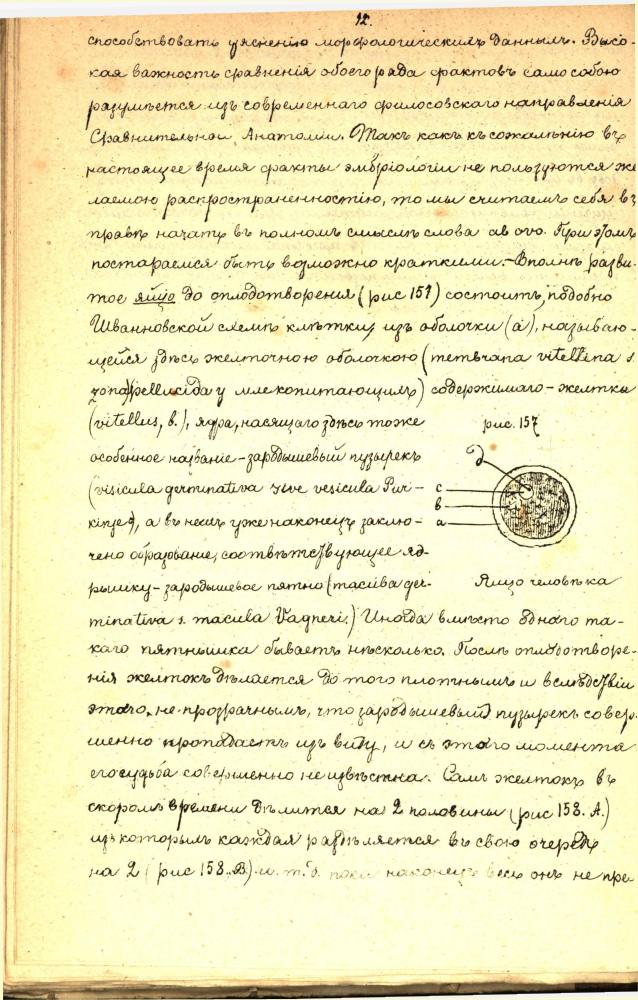 12.
способствовать уясненію морфологическихъ данныхъ. Высо-
кая важность сравненія обоего рода фактовъ само собою
разумѣется изъ современнаго философскаго направленія
Сравнительной Анатоміи. Такъ какъ къ сожалѣнію въ
настоящее время факты эмбріологіи не пользуются же
лаемою распространенностію, то мы считаемъ себя въ
правѣ начать въ полномъ смыслѣ слова ab ovo. При этомъ
постараемся быть возможно краткими. – Вполнѣ разви-
тое яйцо до оплодотворенія (рис 157) состоитъ, подобно
Шванновской схемѣ клѣтки, изъ оболочки (а), называю-
щейся здѣсь желточною оболочкою (membrana vitellina s.
zona pellucida у млекопитающихъ) содержимаго – желтка
(vitellus, в.), ядра, носящаго здѣсь тоже
особенное названіе – зародышевый пузырекъ
(visicula germinativa sive vesicula Pur-
kinje), а въ немъ уже наконецъ заклю-
чено образованіе, соотвѣтствующее яд-
рышку – зародышевое пятно (macula ger-
рис. 157
д
с
в
а
Яйцо человѣка
minativa s. macula Vagneri.) Иногда вмѣсто одного та-
кого пятнышка бываетъ нѣсколько. Послѣ оплодотворе-
нія желтокъ дѣлается до того плотнымъ и вслѣдствіи
этого не прозрачнымъ, что зародышевый пузырекъ совер-
шенно пропадаетъ изъ виду, и съ этого момента
его судьба совершенно неизвѣстна. Самъ желтокъ въ
скоромъ времени дѣлится на 2 половины (рис 158. А.)
изъ которыхъ каждая раздѣляется въ свою очередь
на 2 (рис 158. В.) и. т. д. пока наконецъ весь онъ не пре